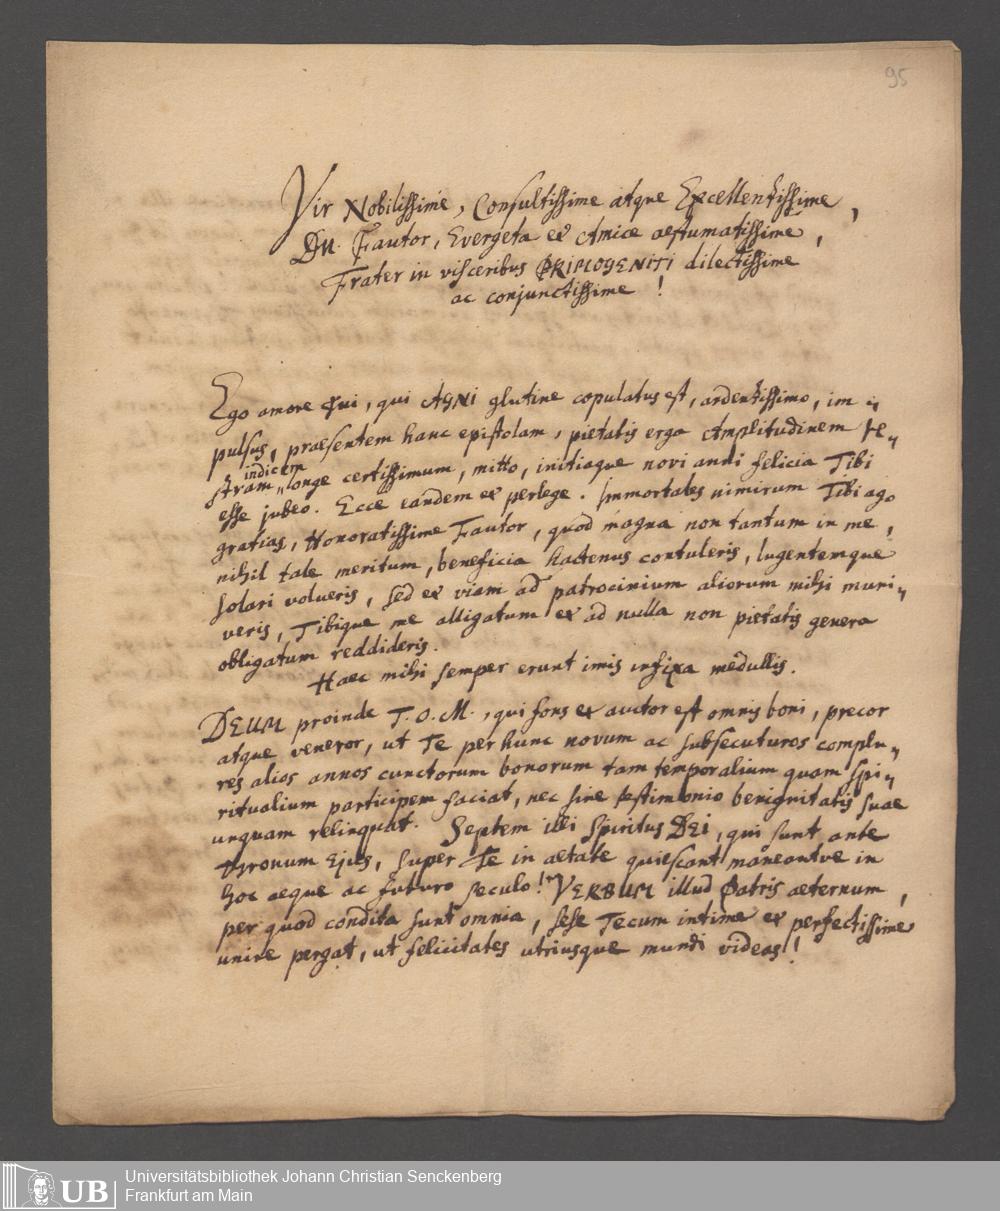 95
Vir Nobilissime, Consultissime atque Excellentissime,
Dn. Fautor, Evergeta et Amice aestumatissime,
Frater in visceribus PRIMOGENITI dilectissime
ac conjunctissime!
Ego amore Tui, qui AGNI glutine copulatus est, ardentissimo, im„
pulsus, praesentem hanc epistolam, pietatis erga Amplitudinem Ve„
indicem
stram „longe certissimum, mitto, initiaque novi anni felicia Tibi
esse jubeo. Ecce eandem et perlege. Immortales nimirum Tibi ago
gratias, Honoratissime Fautor, quod magna non tantum in me,
nihil tale meritum, beneficia hactenus contuleris, lugentemque
solari volueris, sed et viam ad patrocinium aliorum mihi muni„
veris, Tibique me alligatum et ad nulla non pietatis genera
obligatum reddideris.
Haec mihi semper erunt imis infixa medullis.
DEUM proinde T.O.M., qui fons et auctor est omnis boni, precor
atque veneror, ut Te per hunc novum ac subsecuturos complu„
res alios annos cunctorum bonorum tam temporalium quam spi„
ritualium participem faciat, nec sine testimonio benignitatis suae
unquam relinquat. Septem illi Spiritus DEI, qui sunt ante
thronum Ejus, super Te in aetate quiescant maneantve in
hoc aeque ac futuro seculo! VERBUM illud Patris aeternum,
per quod condita sunt omnia, sese Tecum intime et perfectissime
unire pergat, ut felicitates utriusque mundi videas!
Universitätsbibliothek Johann Christian Senckenberg
Frankfurt am Main
UB